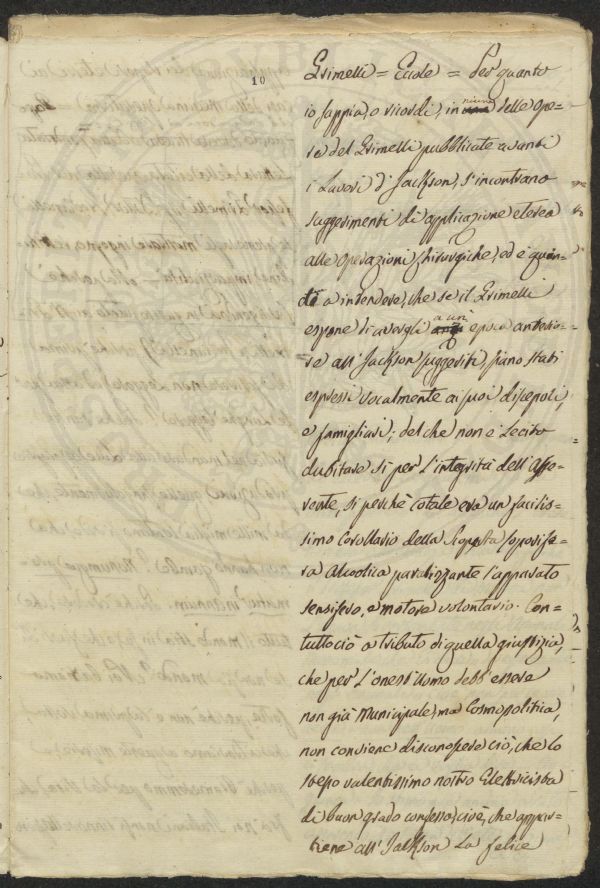 10
Grimelli = Ecole = Per quanto
io sappia, o ricordi, in niuna delle Ope=
re del Grimelli pubblicate avanti
i Lavori di Jackson, s'incontrano
suggerimenti di applicazione eterea
alle operazioni chirurgiche, ed è quin=
di a intendere, che se il Grimelli
espone di averli a un' epoca anterio=
re all' Jackson suggeriti, siano stati
espressi vocalmente ai suoi discepoli,
e famigliari; del che non è lecito
dubitare sì per l'integrità dell' Asse=
rente, sì perchè cotale era un facilis=
simo corollario della scoperta soporife=
ra alcoolica paralizzante l'apparato
sensifero, e motore volontario. Con=
tuttociò a tributo di quella giustizia,
che per l'onest'uomo debb' essere
non già Municipale, ma Cosmopolitica,
non conviene disconoscere ciò, che lo
stesso valentissimo nostro Elettricista
di buon grado confessa, cioè, che appar=
tiene all' Jackson la felice